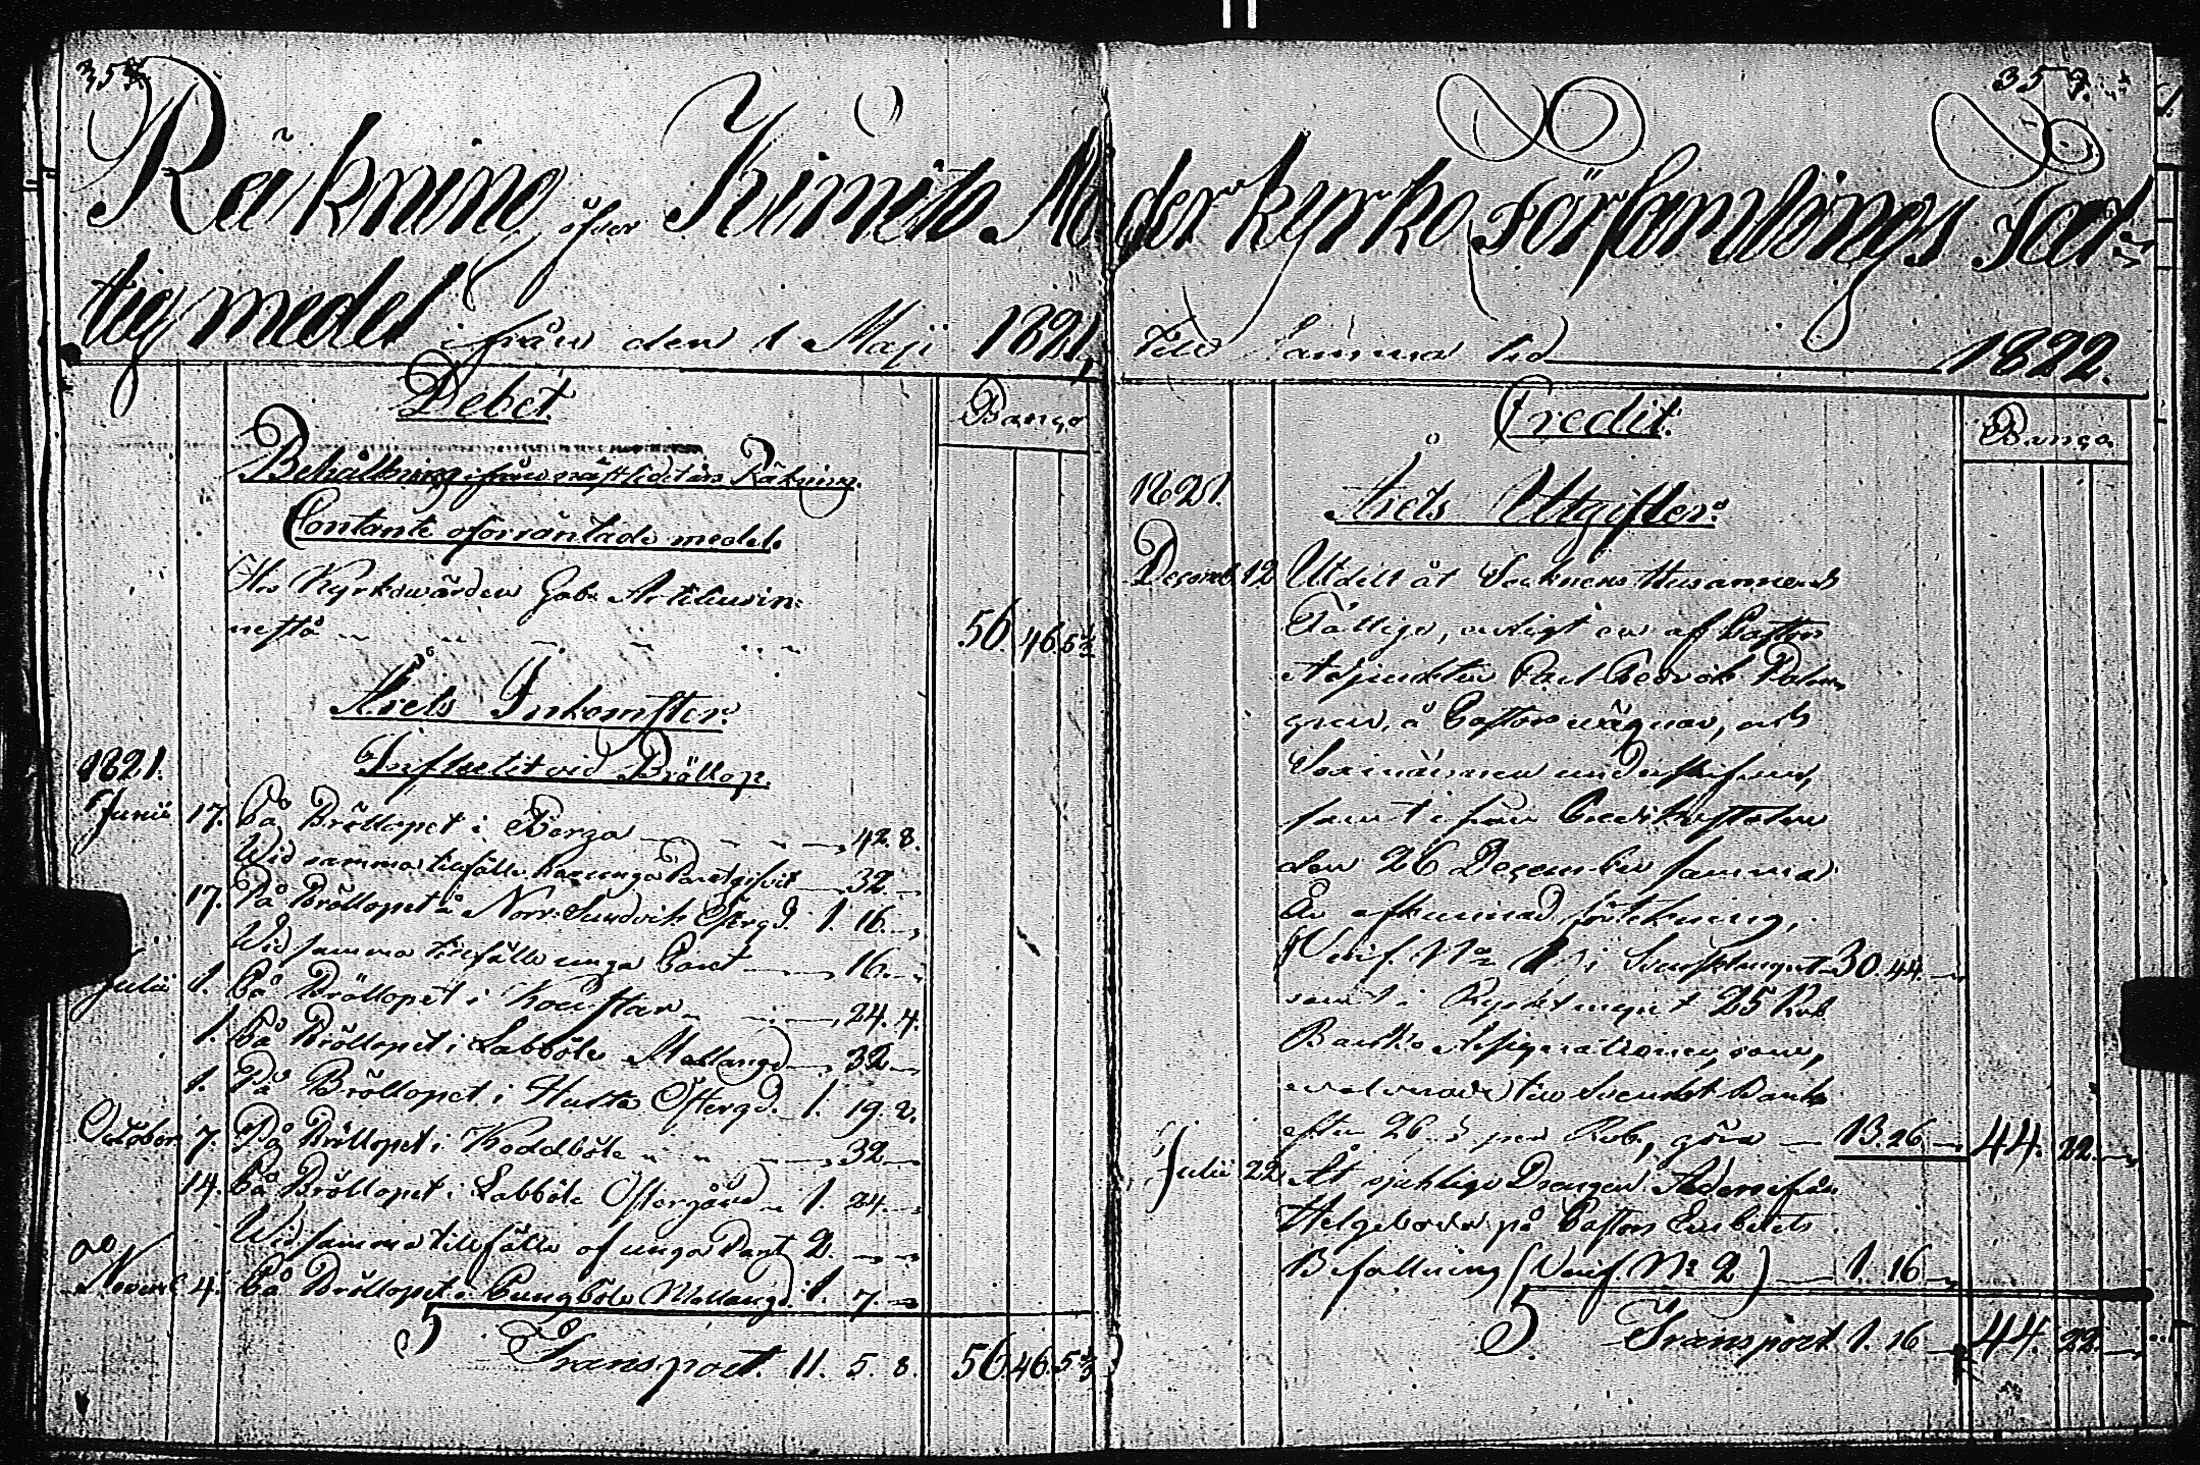 358.
359.
Räkning öfver Kimito Moderkyrko Församlings Fat-
tigmedel ifrån den 1 Maji 1821, till samma tid 1822.
Debet.
Banco
Behållning ifrån näst sidst års Räkning.
Contante oförräntade medel.
Hos Kyrkovärden Gab:
nestå 56. 46. 5⅓
Årets Inkomster.
1821.
Influtit vid Bröllop.
Junii 17. På Bröllopet i Berga 42. 8.
Wid samma tillfälle har unga Paret gifvit 32.
17. På Bröllopet å Norr Sundvik Österg:d 1. 16.
Wid samma tillfälle unga Paret 16.
Julii 1. På Bröllopet i 24. 4.
1. På Bröllopet i Labböle Mellang:d 32
1. På Bröllopet i Österg:d 1. 19. 2.
October 7. På Bröllopet i Koddböle 32
14. På Bröllopet i Labböle Östergård 1. 24.
Wid samma tillfälle af unga Paret 2.
Novemb 4. På Bröllopet i Pungböle Mellang:d 1. 7.
Transport. 11. 5. 8. 56. 46. 5⅓
Credit.
Banco
1821.
Årets Utgifter.
Decemb 12 Utdelt åt Socknens Husarmen och
Fattige, enligt en af Pastors
Adjuncten Carl Fredrik Palm-
gren, å Pastors vägnar, och
Sexmännen underskrifven,
samt ifrån Predikstolen
den 26 December samma
År afkunnad förtekning,
(Verif. N:o 1) i Svenskt mynt 30. 44.
samt i Ryskt mynt 25 Rub
Banko Assignationer, som,
evalverade till Svenskt Banko
efter 26 s per Rub, göra 13. 26 44. 22.
Julii 22 Åt sjuklige Drängen ifrån
Helgeboda på Pastors Embetets
Befallning (Verif. N:o 2) 1. 16
Transport 1. 16 44. 22.